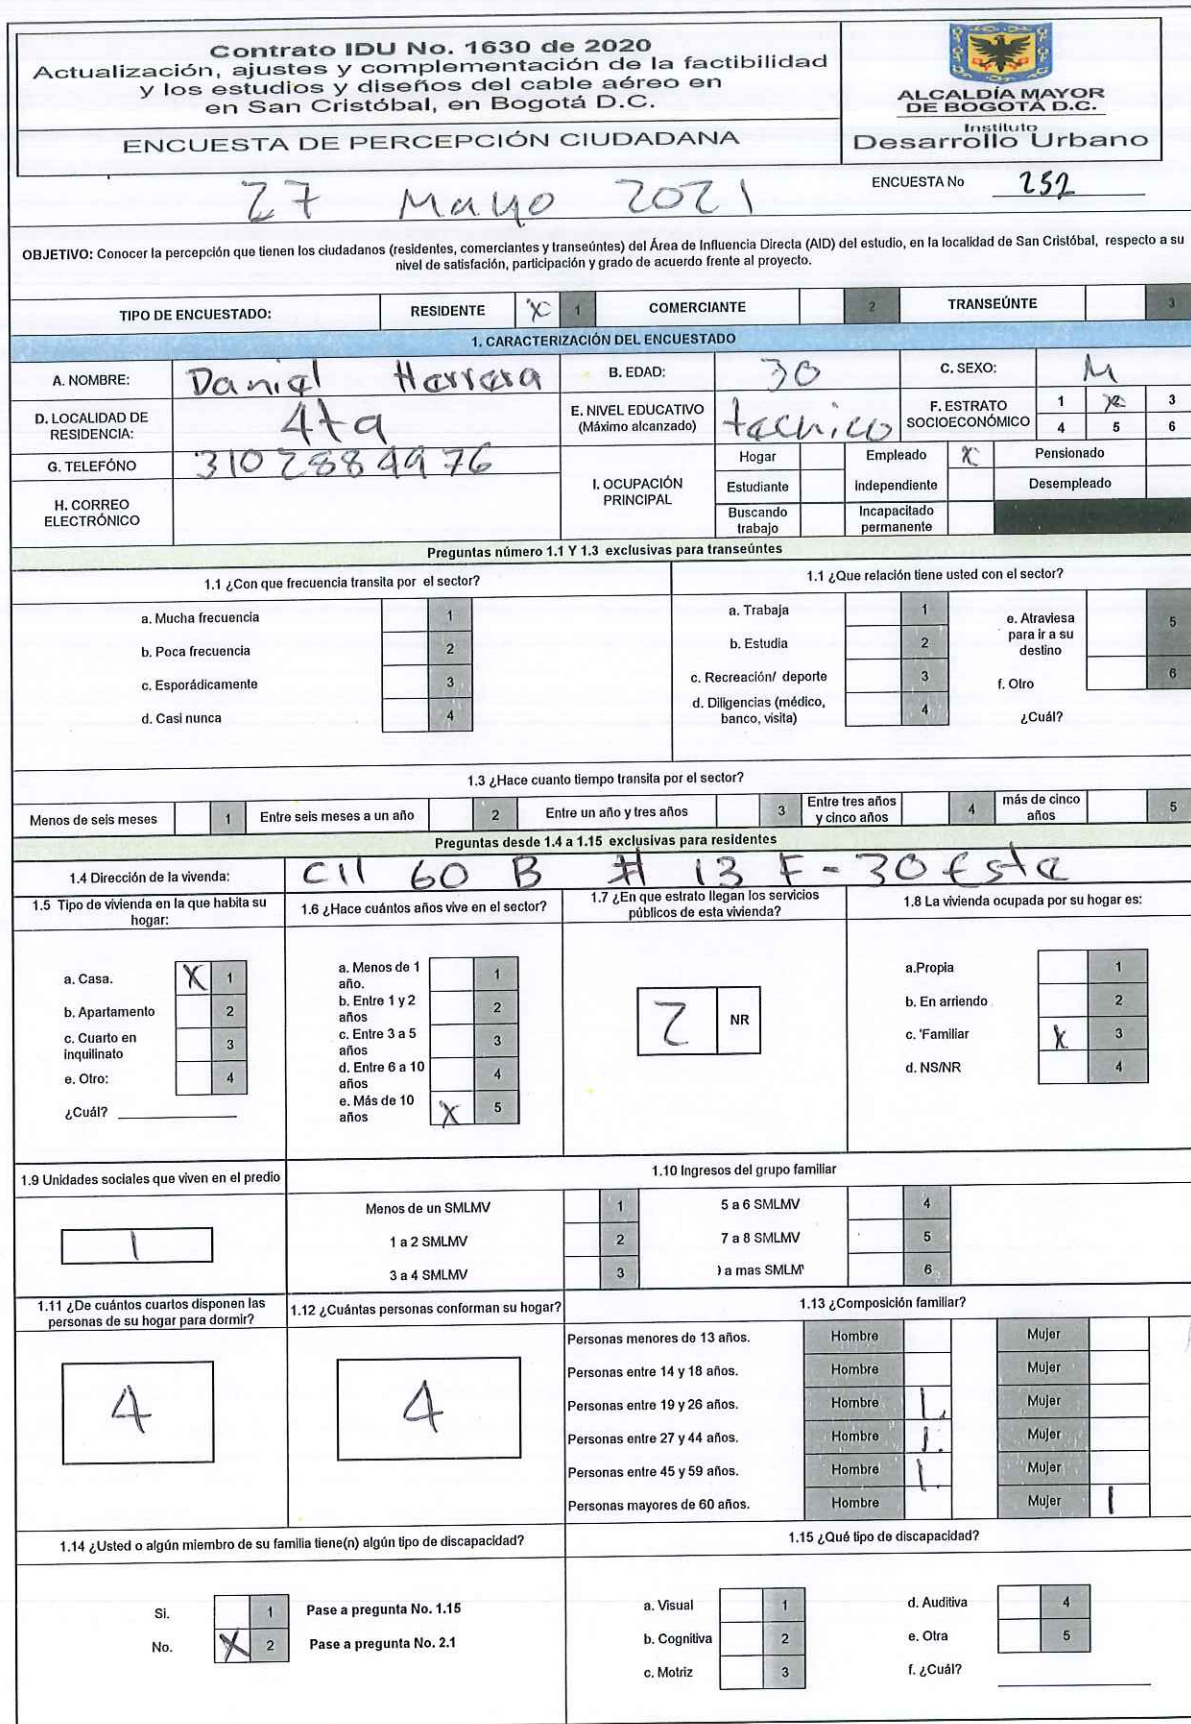 Contrato IDU No. 1630 de 2020
Actualización, ajustes y complementación de la factibilidad
y los estudios y diseños del cable aéreo en
en San Cristóbal, en Bogotá D.C.
ENCUESTA DE PERCEPCIÓN CIUDADANA
ALCALDÍA MAYOR
DE BOGOTÁ D.C.
Instituto
Desarrollo Urbano
27 Mayo 2021
ENCUESTA No 252
OBJETIVO: Conocer la percepción que tienen los ciudadanos (residentes, comerciantes y transeúntes) del Área de Influencia Directa (AID) del estudio, en la localidad de San Cristóbal, respecto a su
nivel de satisfacción, participación y grado de acuerdo frente al proyecto.
TIPO DE ENCUESTADO: RESIDENTE X 1 COMERCIANTE 2 TRANSEÚNTE 3
1. CARACTERIZACIÓN DEL ENCUESTADO
A. NOMBRE: Daniel Herrera B. EDAD: 30 C. SEXO: M
D. LOCALIDAD DE
RESIDENCIA:
4ta
E. NIVEL EDUCATIVO
(Máximo alcanzado)
tecnico
F. ESTRATO
SOCIOECONÓMICO
1 X 3
4 5 6
G. TELEFÓNO 3102884976
H. CORREO
ELECTRÓNICO
I. OCUPACIÓN
PRINCIPAL
Hogar Empleado X Pensionado
Estudiante independiente Desempleado
Buscando
trabajo
Incapacitado
permanente
Preguntas número 1.1 Y 1.3 exclusivas para transeúntes
1.1 ¿Con que frecuencia transita por el sector?
a. Mucha frecuencia 1
b. Poca frecuencia 2
c. Esporádicamente 3
d. Casi nunca 4
1.1 ¿Que relación tiene usted con el sector?
a. Trabaja 1
b. Estudia 2
c. Recreación/ deporte 3
d. Diligencias (médico,
banco, visita)
4
e. Atraviesa
para ir a su
destino
5
f. Otro 6
¿Cuál?
1.3 ¿Hace cuanto tiempo transita por el sector?
Menos de seis meses 1 Entre seis meses a un año 2 Entre un año y tres años 3 Entre tres años
y cinco años
4 más de cinco
años
5
Preguntas desde 1.4 a 1.15 exclusivas para residentes
1.4 Dirección de la vivenda: Cll 60 B # 13 F - 30 Este
1.5 Tipo de vivienda en la que habita su
hogar:
a. Casa. X 1
b. Apartamento 2
c. Cuarto en
inquilinato
3
e. Otro: 4
¿Cuál?
1.6 ¿Hace cuántos años vive en el sector?
a. Menos de 1
año.
1
b. Entre 1 y 2
años
2
c. Entre 3 a 5
años
3
d. Entre 6 a 10
años
4
e. Más de 10
años
X 5
1.7 ¿En que estrato llegan los servicios
públicos de esta vivienda?
2 NR
1.8 La vivienda ocupada por su hogar es:
a.Propia 1
b. En arriendo 2
c. 'Familiar X 3
d. NS/NR 4
1.9 Unidades sociales que viven en el predio
1
1.10 Ingresos del grupo familiar
Menos de un SMLMV 1 5 a 6 SMLMV 4
1 a 2 SMLMV 2 7 a 8 SMLMV 5
3 a 4 SMLMV 3 ) a mas SMLM' 6
1.11 ¿De cuántos cuartos disponen las
personas de su hogar para dormir?
4
1.12 ¿Cuántas personas conforman su hogar?
4
1.13 ¿Composición familiar?
Personas menores de 13 años. Hombre Mujer
Personas entre 14 y 18 años. Hombre Mujer
Personas entre 19 y 26 años. Hombre 1. Mujer
Personas entre 27 y 44 años. Hombre 1. Mujer
Personas entre 45 y 59 años. Hombre 1. Mujer
Personas mayores de 60 años. Hombre Mujer 1
1.14 ¿Usted o algún miembro de su familia tiene(n) algún tipo de discapacidad?
Si. 1 Pase a pregunta No. 1.15
No. X 2 Pase a pregunta No. 2.1
1.15 ¿Qué tipo de discapacidad?
a. Visual 1 d. Auditiva 4
b. Cognitiva 2 e. Otra 5
c. Motriz 3 f. ¿Cuál?